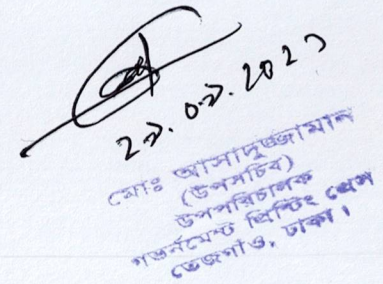 ২২.০২.২০২১
মোঃ আসাদুজ্জামান
(উপসচিব)
উপপরিচালক
গভর্নমেন্ট প্রিন্টিং প্রেস
তেজগাঁও, ঢাকা।